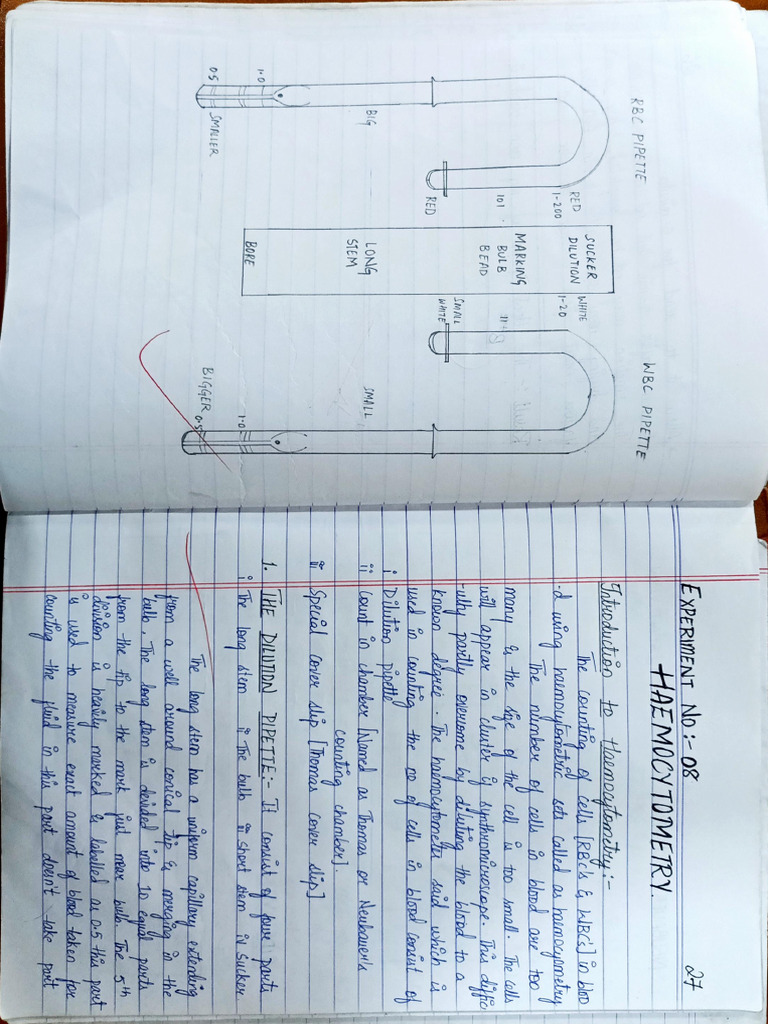 RBC PIPETTE
RED
1-200
101
RED
BIG
1.0
0.5
SMALLER
SUCKER
DILUTION
MARKING
BULB
BEAD
LONG
STEM
BORE
WBC PIPETTE
WHITE
1-20
11
SMALL
WHITE
SMALL
1.0
0.5
BIGGER
27
EXPERIMENT No:- 08
HAEMOCYTOMETRY.
Introduction to Haemocytometry:-
The counting of cells [RBC's & WBC's] in bloo
-d using haemocytometric sets called as haemocytometry
The number of cells in blood are too
many & the size of the cell is too small. The cells
will appear in cluster if synthromicroscope. This diffic
-ulty partly overcome by diluting the blood to a
known degree. The haemocytometer said which is
used in counting the no of cells in blood consist of
i Dilution pipette
ii Count in chamber [Named as Thomas or Neubauer's
counting chamber].
iii Special cover slip [Thomas cover slip]
1. THE DILUTION PIPETTE:- It consist of four parts
i The long stem ii The bulb iii short stem iv Sucker
The long stem has a uniform capillary extending
from a well around conical tip & merging in the
bulb. The long stem is devided into 10 equal parts
from the tip to the mark just near bulb. The 5th
division is heavily marked & labelled as 0.5 this part
is used to measure exact amount of blood taken for
counting the fluid in this part doesn't take part